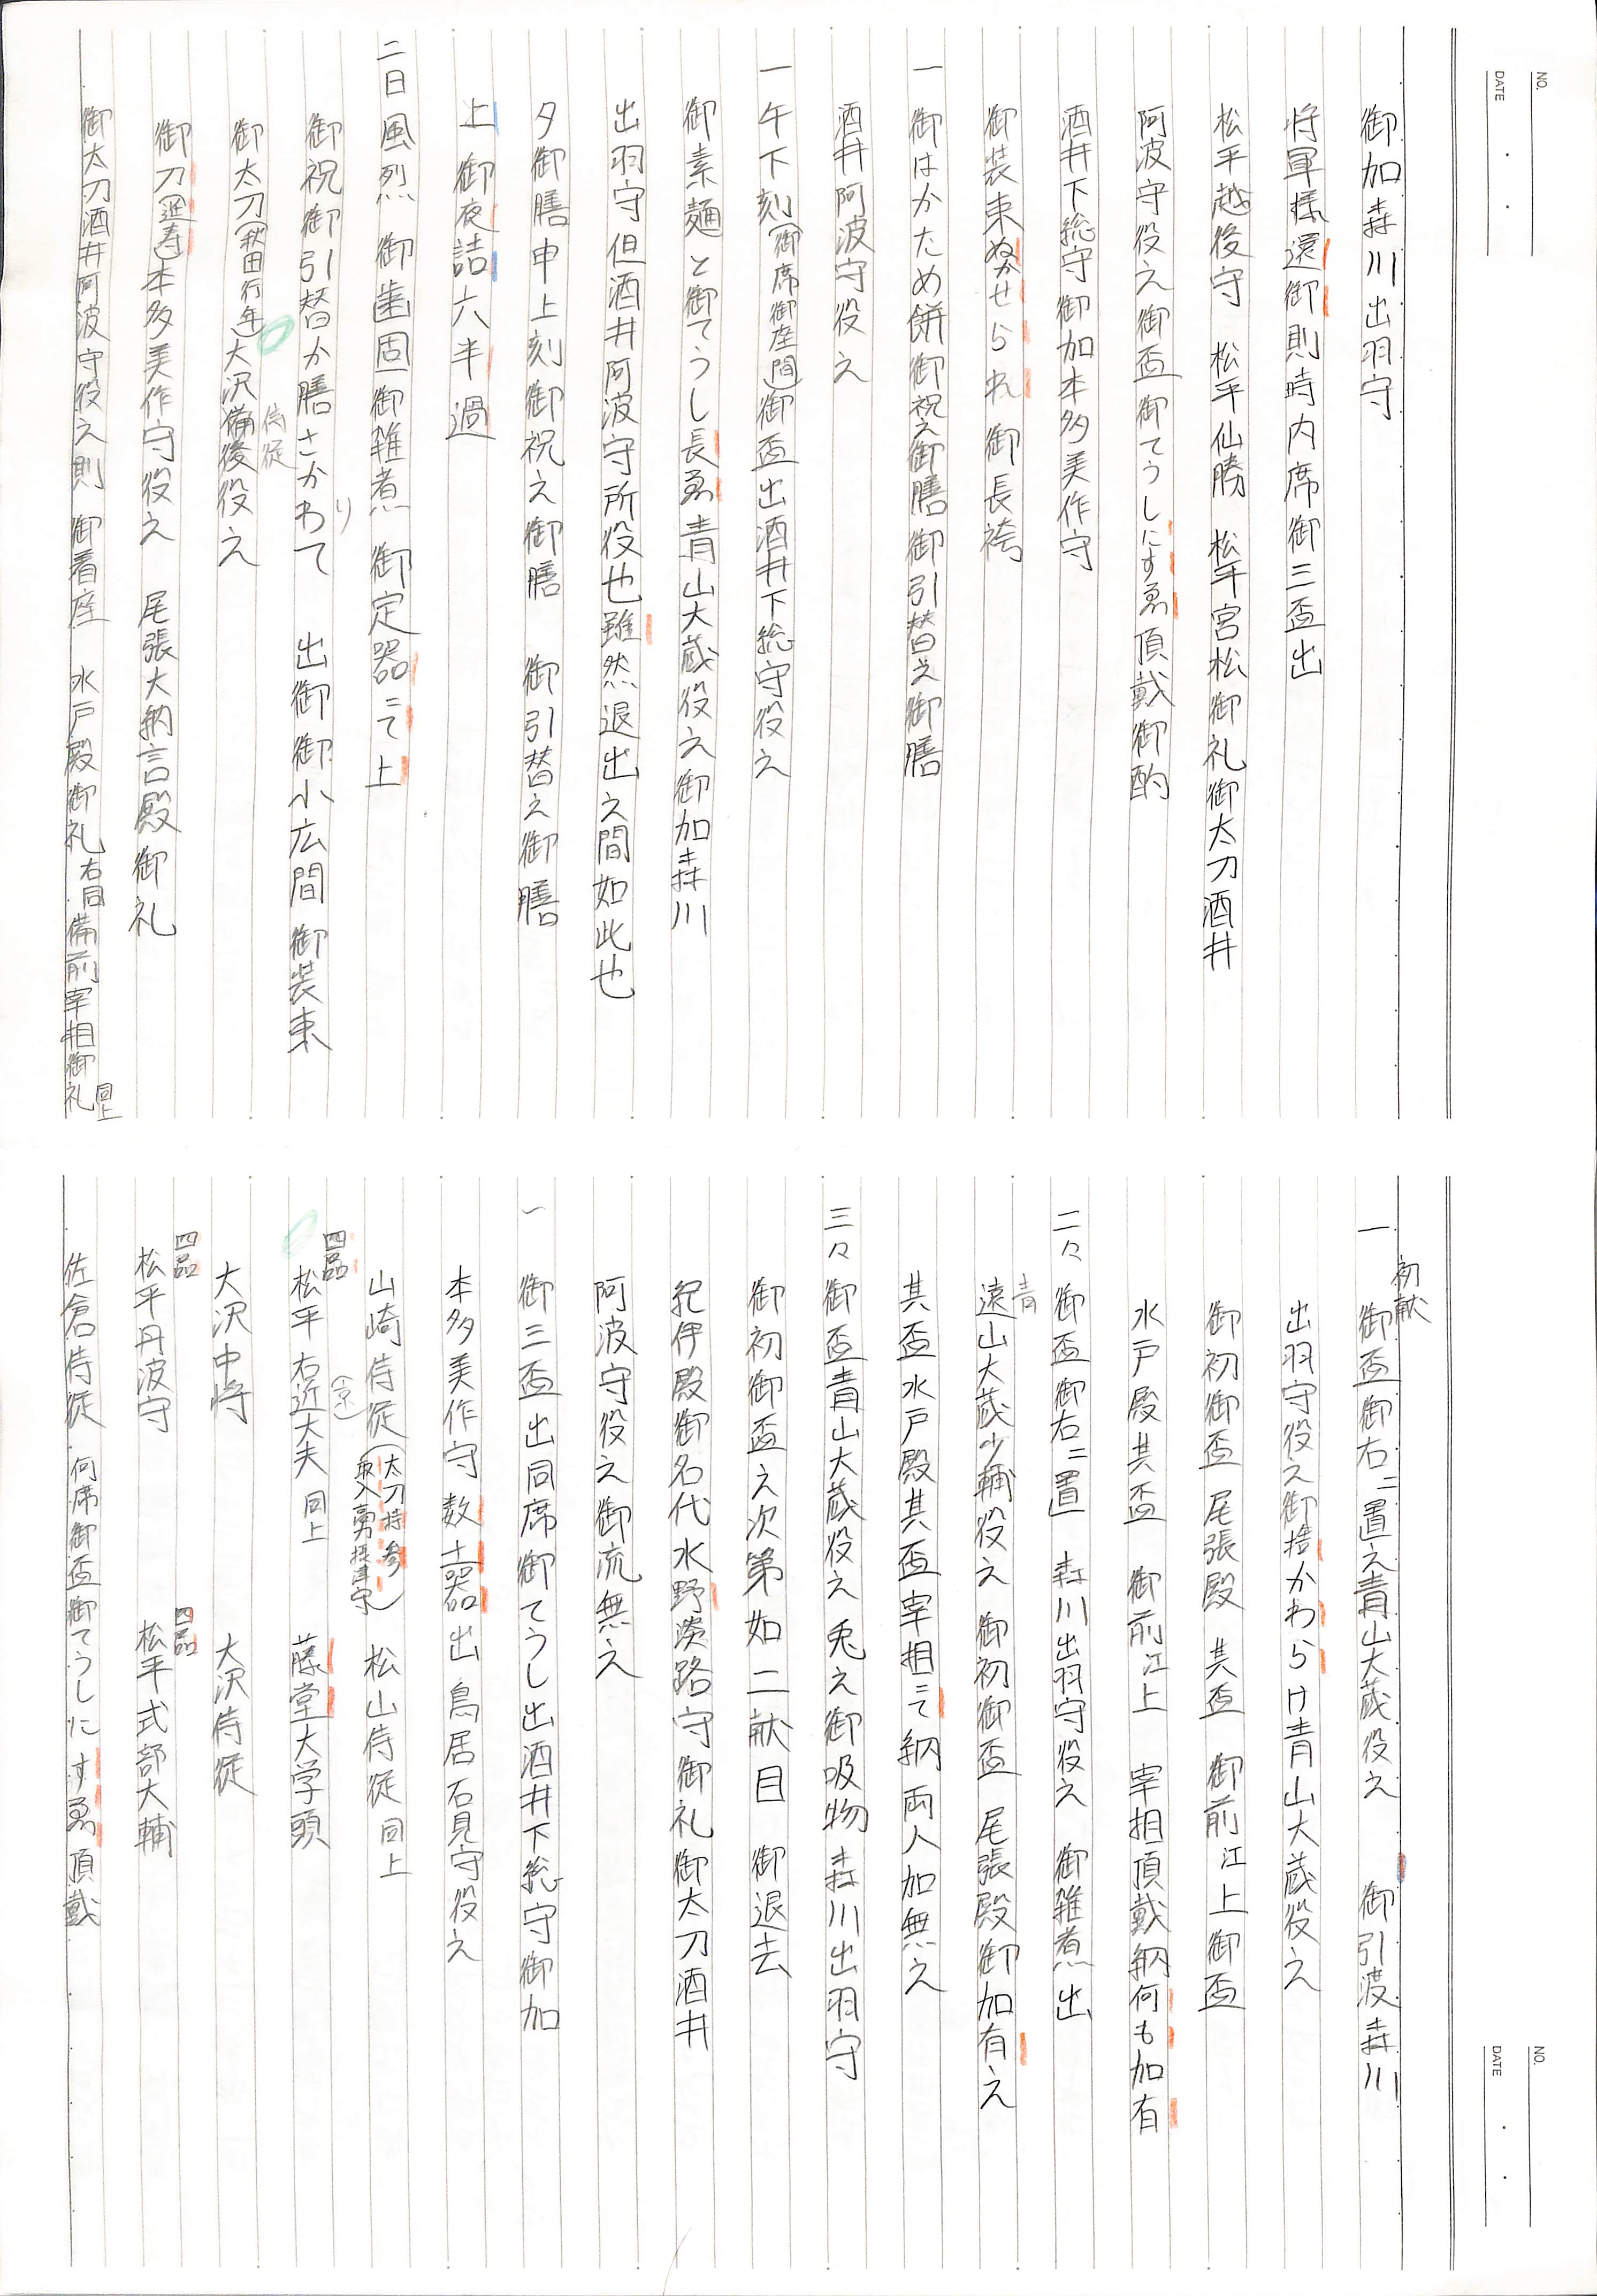 NO.
DATE
御加森川出羽守
将軍様還御則時内席御三盃出
松平越後守 松平仙勝 松平宮松御礼御太刀酒井
阿波守役之御盃御てうしにすゑ頂戴御酌
酒井下総守御加本多美作守
御装束ぬかせられ御長袴
一 御はかため餅御祝之御膳御引替之御膳
酒井阿波守役之
一 午下刻(御席御座間)御盃出酒井下総守役之
御素麺と御てうし長ゑ青山大蔵役之御加森川
出羽守但酒井阿波守所役也雖然退出之間如此也
夕御膳申上刻御祝之御膳 御引替之御膳
上御夜詰六半過
二日風烈 御歯固御雑煮 御定器ニて上
御祝御引替か膳さかわりて 出御御小広間御装束
御太刀(秋田行年)大沢備後役之
侍従
御刀(近寿)本多美作守役之 尾張大納言殿御礼
御太刀酒井阿波守役之則 御着座 水戸殿御礼右同備前宰相御礼同上
NO.
DATE
初献
一 御盃御右ニ置之青山大蔵役之 御引渡森川
出羽守役之御捨かわらけ青山大蔵役之
御初御盃尾張殿 其盃 御前江上御盃
水戸殿其盃 御前江上 宰相頂戴納何も加有
二々御盃御右ニ置 森川出羽守役之 御雑煮出
青
遠山大蔵少輔役之 御初御盃 尾張殿御加有之
其盃水戸殿其盃宰相ニて納両人加無之
三々御盃青山大蔵役之兎之御吸物森川出羽守
御初御盃之次第如二献目 御退去
紀伊殿御名代水野淡路守御礼御太刀酒井
阿波守役之御流無之
一 御三盃出同席御てうし出酒井下総守御加
本多美作守数土器出鳥居石見守役之
山崎侍従(太刀持参 取入高勇摂津守) 松山侍従同上
四品
松平右近大夫同上 藤堂大学頭
(京)
大沢中将 大沢侍従
四品 四品
松平丹波守 松平式部大輔
佐倉侍従 何席御盃御てうしにすゑ頂戴